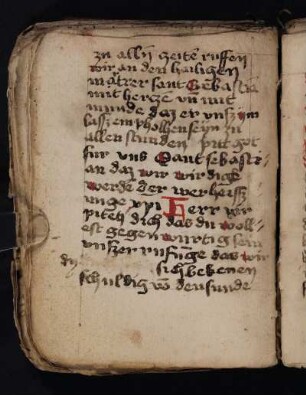 zu allen zeite ruffen
wir an den hailigen
martrer sant Sebastia
mit hercze vn mit
munde daz er vnsz im
lasz empholhen seyn zu
allen stunden pit got
fur vns Sant sebasti=
an daz wir wirdige
werde der verheisz
unge xpi Herr wir
piten dich das du woll=
est gegen wurtig sein
vnszer das wir
sich bekenen
schuldig võ der sunde